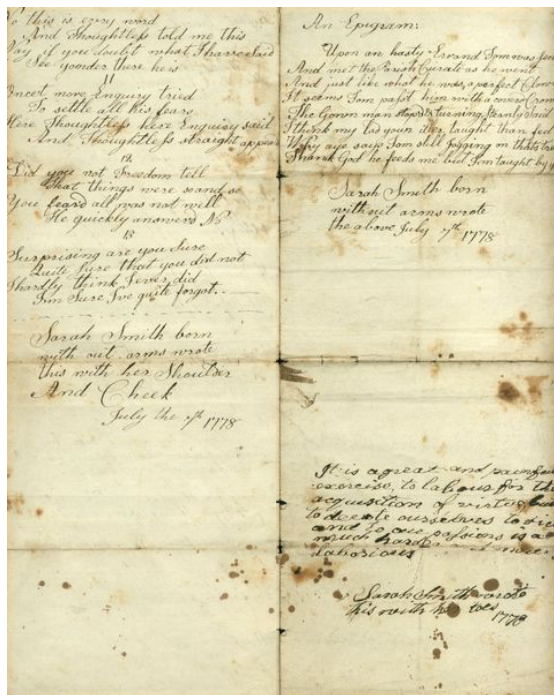 To this is every word
And Thoughtless told me this
Say if you doubt what I have Said
See yonder there he is
11
Incest more Enquiry tried
To settle all his fears
Here Thoughtless here Enquiry said
And Thoughtless straight appears
12
Did you not Freedom tell
That things were so and so
You feard all was not well
He quickly answerd No
13
Surprising are you Sure
Quite Sure that you did not
I hardly think I ever did
I'm Sure I've quite forgot.
Sarah Smith born
with out arms wrote
this with her Shoulder
And Cheek
July the 7th 1778
An Epigram:
Upon an hasty Errand Tom was
And met the Parish Curate as he went
And just like what he was, a perfect Clown
It seems Tom past him with a over Crown
The Gown man stopt & turning, Sternly Said
I think my lad your better taught than fed
Why aye says Tom still jogging on thats true
Thank God he feeds me but I'm taught by
Sarah Smith born
without arms wrote
the above July 7th 1778
It is a great and painful
exercise, to labour for the
acquisition of virtue but
to devote ourselves to
and to our passions is a
much harder more
laborious
Sarah Smith wrote
this with her toes
1778